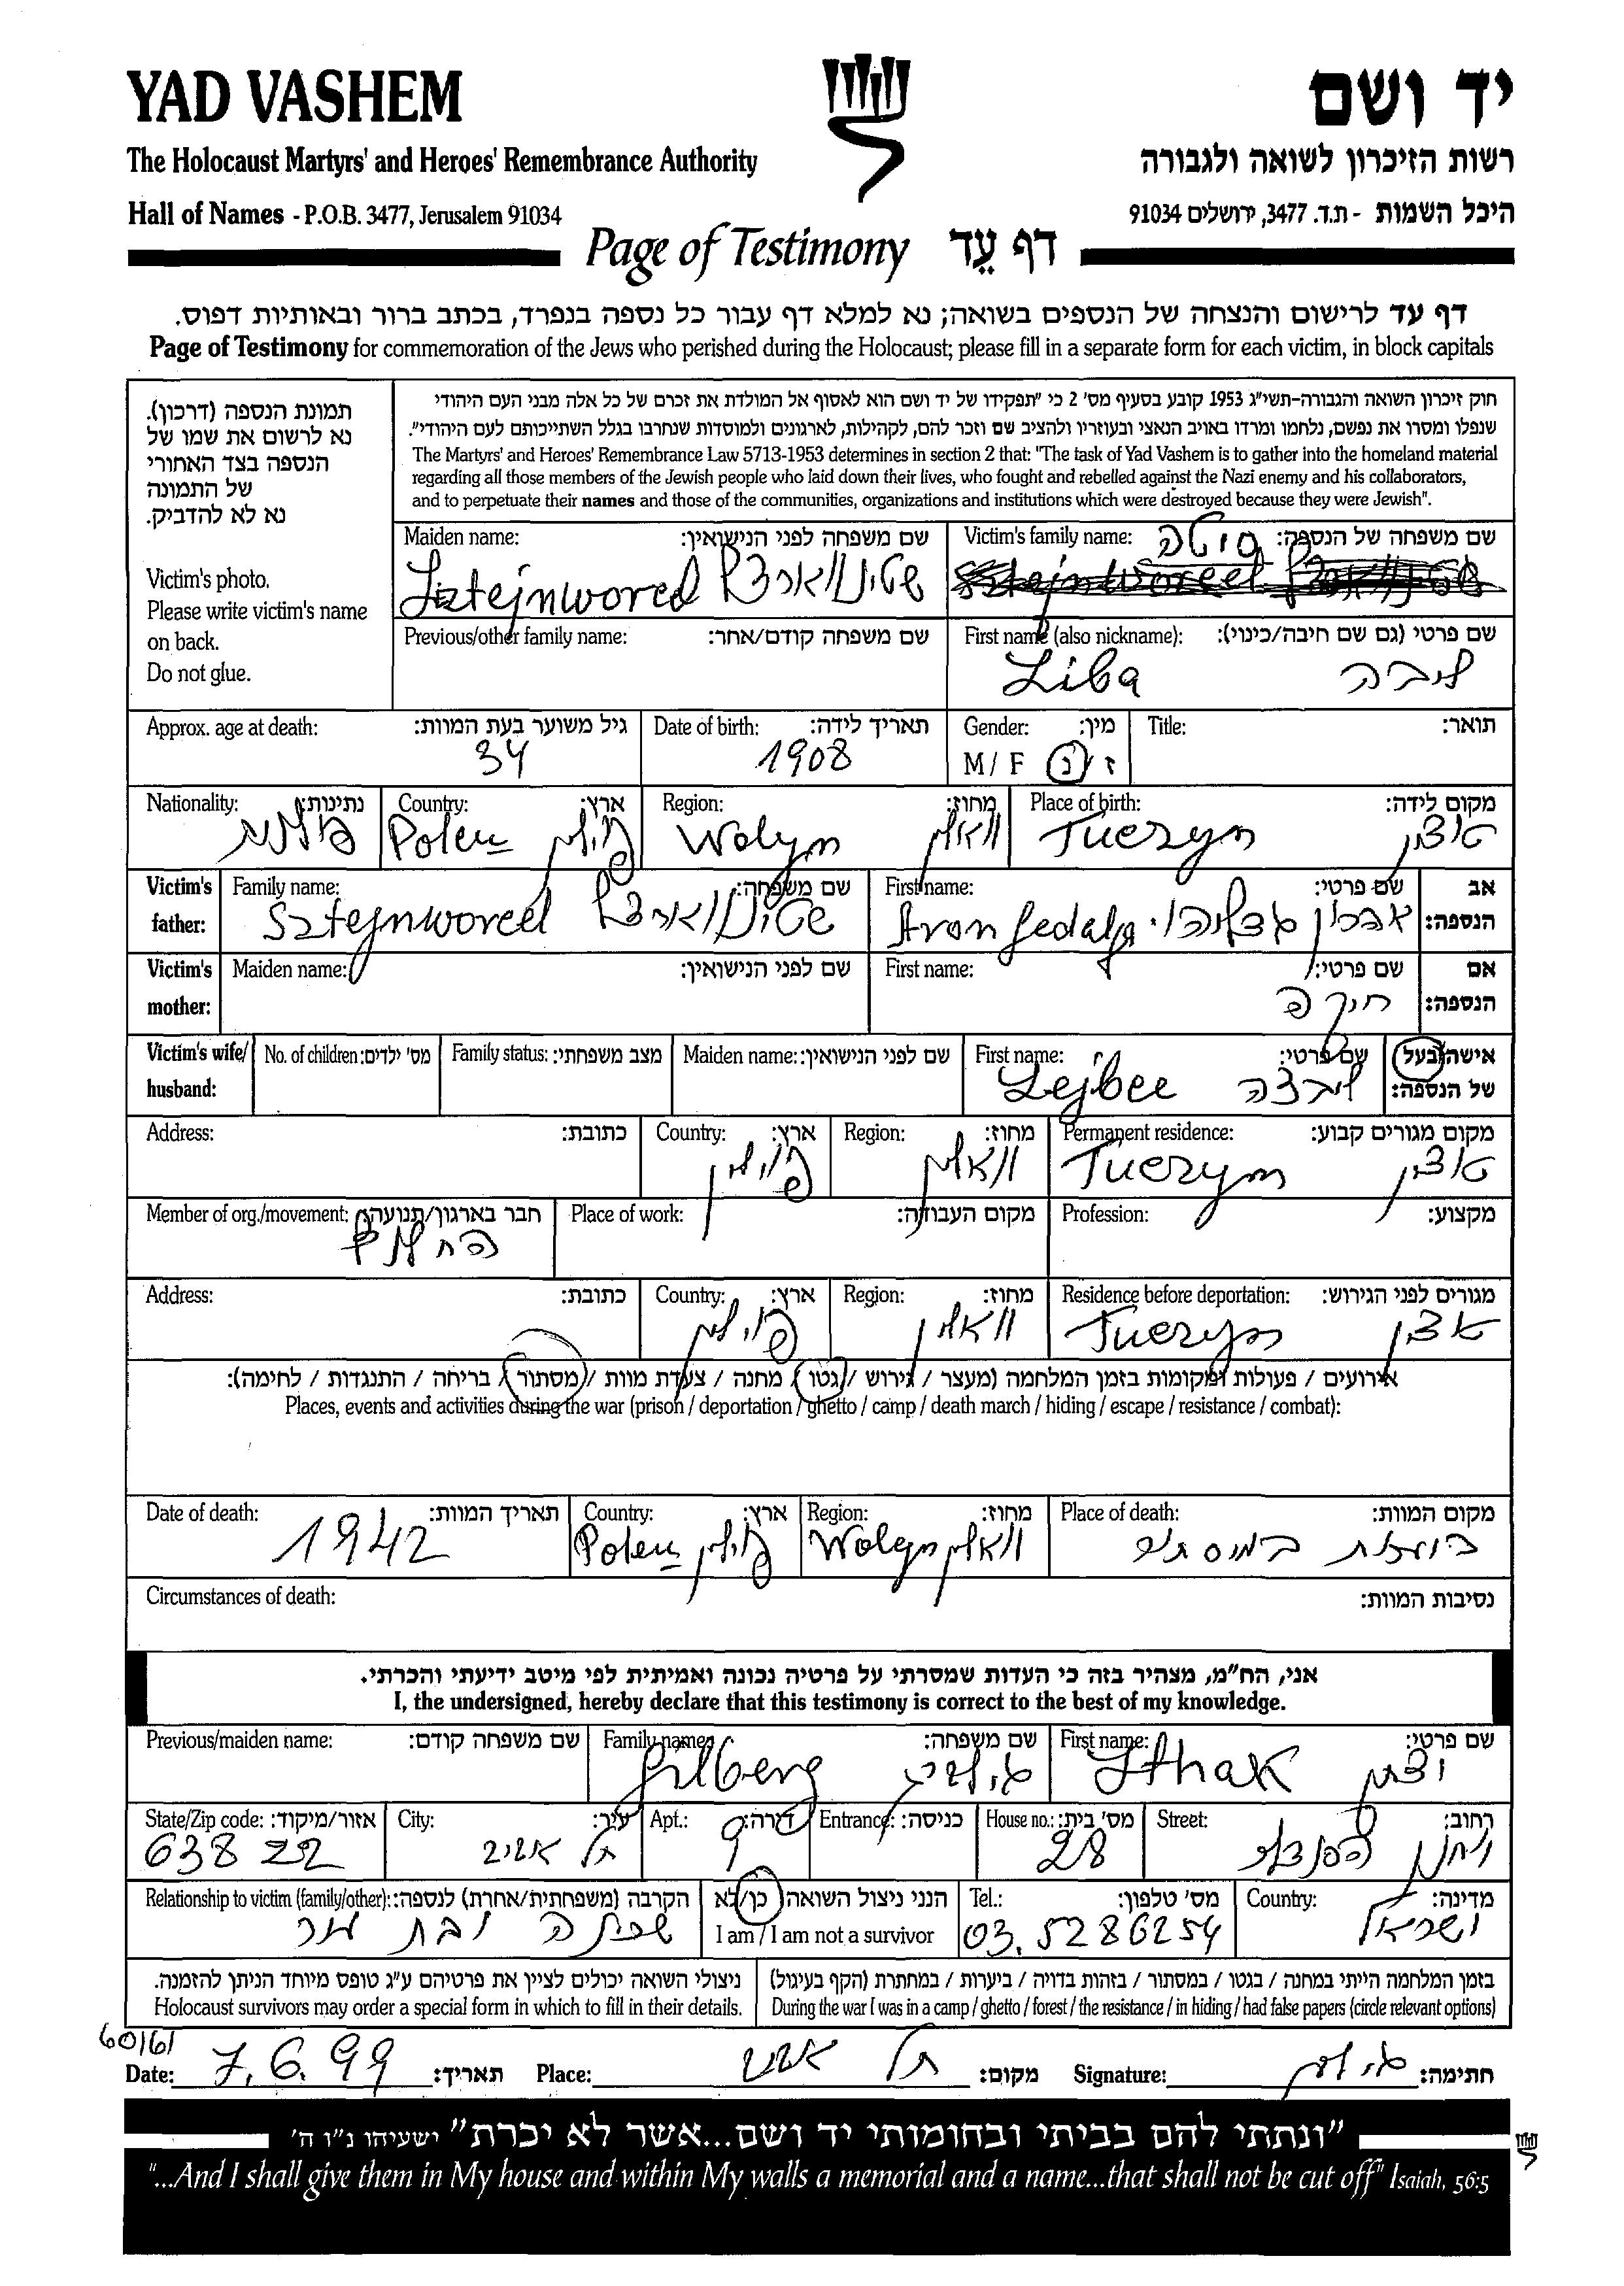 YAD VASHEM
יד ושם
The Holocaust Martyrs' and Heroes' Remembrance Authority
רשות הזיכרון לשואה ולגבורה
Hall of Names - P.O.B. 3477, Jerusalem 91034
היכל השמות - ת.ד. 3477, ירושלים 91034
Page of Testimony דף עֵד
דף עד לרישום והנצחה של הנספים בשואה; נא למלא דף עבור כל נספה בנפרד, בכתב ברור ובאותיות דפוס.
Page of Testimony for commemoration of the Jews who perished during the Holocaust; please fill in a separate form for each victim, in block capitals
תמונת הנספה (דרכון).
נא לרשום את שמו של
הנספה בצד האחורי
של התמונה
נא לא להדביק.
Victim's photo.
Please write victim's name
on back.
Do not glue.
חוק זיכרון השואה והגבורה-תשי"ג 1953 קובע בסעיף מס' 2 כי "תפקידו של יד ושם הוא לאסוף אל המולדת את זכרם של כל אלה מבני העם היהודי
שנפלו ומסרו את נפשם, נלחמו ומרדו באויב הנאצי ובעוזריו ולהציב שם וזכר להם, לקהילות, לארגונים ולמוסדות שנחרבו בגלל השתייכותם לעם היהודי".
The Martyrs' and Heroes' Remembrance Law 5713-1953 determines in section 2 that: "The task of Yad Vashem is to gather into the homeland material
regarding all those members of the Jewish people who laid down their lives, who fought and rebelled against the Nazi enemy and his collaborators,
and to perpetuate their names and those of the communities, organizations and institutions which were destroyed because they were Jewish".
Victim's family name: שם משפחה של הנספה:
Maiden name: שם משפחה לפני הנישואין:
Sztejnworcel שטיינווארצל
First name (also nickname): שם פרטי (גם שם חיבה/כינוי):
Liba ליבה
Previous/other family name: שם משפחה קודם/אחר:
Title: תואר:
Gender: מין:
M / F ז / נ
Date of birth: תאריך לידה:
1908
Approx. age at death: גיל משוער בעת המוות:
34
Place of birth: מקום לידה:
Tuczyn טוצין
Region: מחוז:
Wolyn וואלין
Country: ארץ:
Polen פולין
Nationality: נתינות:
פולנית
Victim's father: אב הנספה:
First name: שם פרטי:
Aron Gedalja אהרון גדליהו
Family name: שם משפחה:
Sztejnworcel שטיינווארצל
Victim's mother: אם הנספה:
First name: שם פרטי:
Maiden name: שם לפני הנישואין:
Victim's wife/ husband: אישה/בעל של הנספה:
First name: שם פרטי:
Maiden name: שם לפני הנישואין:
Family status: מצב משפחתי:
No. of children: מס' ילדים:
Permanent residence: מקום מגורים קבוע:
Tuczyn טוצין
Region: מחוז:
וואלין
Country: ארץ:
פולין
Address: כתובת:
Profession: מקצוע:
Place of work: מקום העבודה:
Member of org./movement: חבר בארגון/תנועה:
החלוץ
Residence before deportation: מגורים לפני הגירוש:
Tuczyn טוצין
Region: מחוז:
וואלין
Country: ארץ:
פולין
Address: כתובת:
אירועים / פעולות ומקומות בזמן המלחמה (מעצר / גירוש / גטו / מחנה / צעדת מוות / מסתור / בריחה / התנגדות / לחימה):
Places, events and activities during the war (prison / deportation / ghetto / camp / death march / hiding / escape / resistance / combat):
Place of death: מקום המוות:
Region: מחוז:
Wolyn וואלין
Country: ארץ:
Polen פולין
Date of death: תאריך המוות:
1942
Circumstances of death: נסיבות המוות:
אני, הח"מ, מצהיר בזה כי העדות שמסרתי על פרטיה נכונה ואמיתית לפי מיטב ידיעתי והכרתי.
I, the undersigned, hereby declare that this testimony is correct to the best of my knowledge.
First name: שם פרטי:
Ithak יצחק
Family name: שם משפחה:
Gilberg גילברג
Previous/maiden name: שם משפחה קודם:
Street: רחוב:
יוחנן הסנדלר
House no.: מס' בית:
28
Entrance: כניסה:
Apt.: דירה:
9
City: עיר:
תל אביב
State/Zip code: אזור/מיקוד:
638 22
Country: מדינה:
ישראל
Tel.: מס' טלפון:
03.5286254
הנני ניצול השואה כן/לא
I am / I am not a survivor
Relationship to victim (family/other): הקרבה (משפחתית/אחרת) לנספה:
שכנה ובת עיר
בזמן המלחמה הייתי במחנה / בגטו / במסתור / בזהות בדויה / ביערות / במחתרת (הקף בעיגול)
During the war I was in a camp / ghetto / forest / the resistance / in hiding / had false papers (circle relevant options)
ניצולי השואה יכולים לציין את פרטיהם ע"ג טופס מיוחד הניתן להזמנה.
Holocaust survivors may order a special form in which to fill in their details.
Date: 7.6.99 תאריך:
Place: תל אביב מקום:
Signature: חתימה:
"ונתתי להם בביתי ובחומותי יד ושם...אשר לא יכרת" ישעיהו נ"ו ה'
"...And I shall give them in My house and within My walls a memorial and a name...that shall not be cut off" Isaiah, 56:5